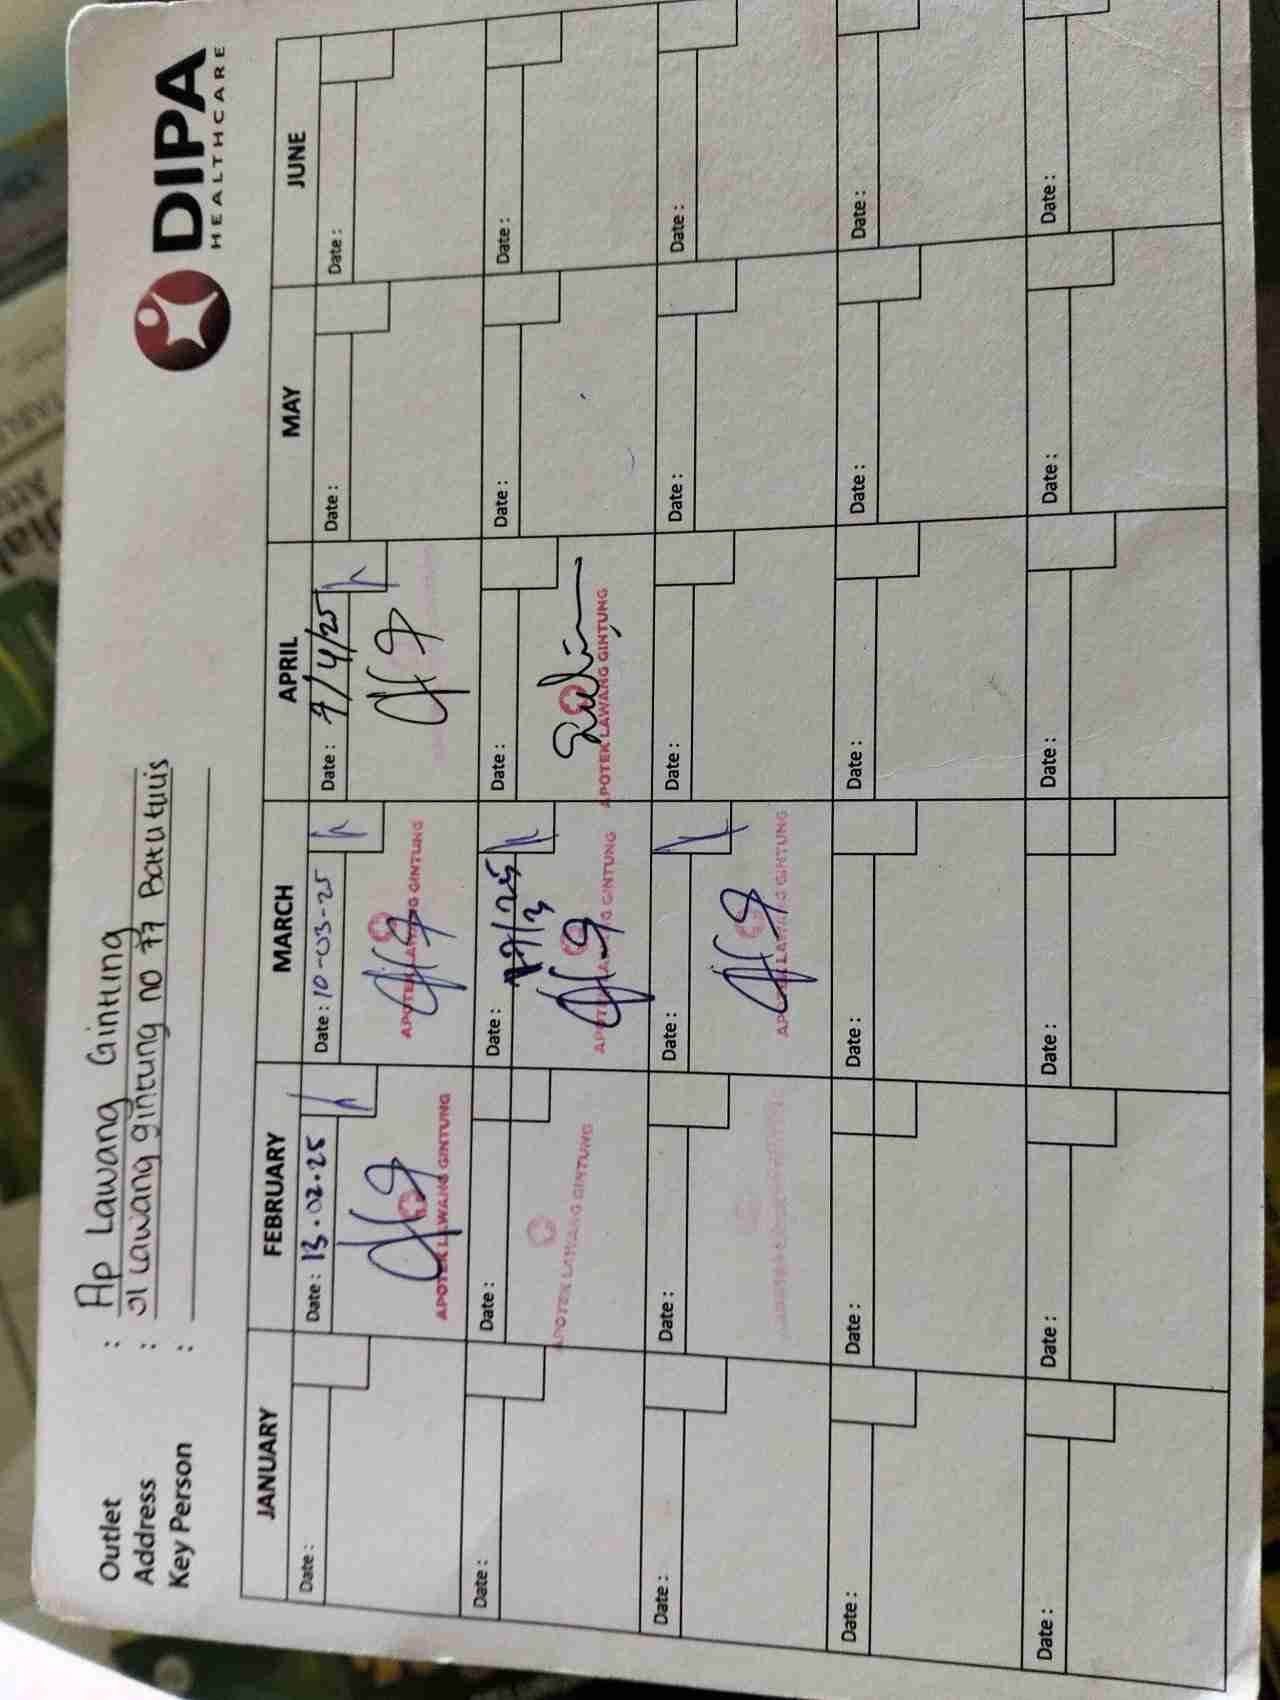 DIPA
HEALTHCARE
Outlet : Ap Lawang Gintung
Address : Jl Lawang gintung no 77 Batutulis
Key Person :
JANUARY FEBRUARY MARCH APRIL MAY JUNE
Date : Date : 13.02.25 Date : 10-03-25 Date : 9/4/25 Date : Date :
APOTEK LAWANG GINTUNG APOTEK LAWANG GINTUNG
Date : Date : Date : Date : Date : Date :
APOTEK LAWANG GINTUNG APOTEK LAWANG GINTUNG APOTEK LAWANG GINTUNG
Date : Date : Date : Date : Date : Date :
APOTEK LAWANG GINTUNG
Date : Date : Date : Date : Date : Date :
Date : Date : Date : Date : Date : Date :